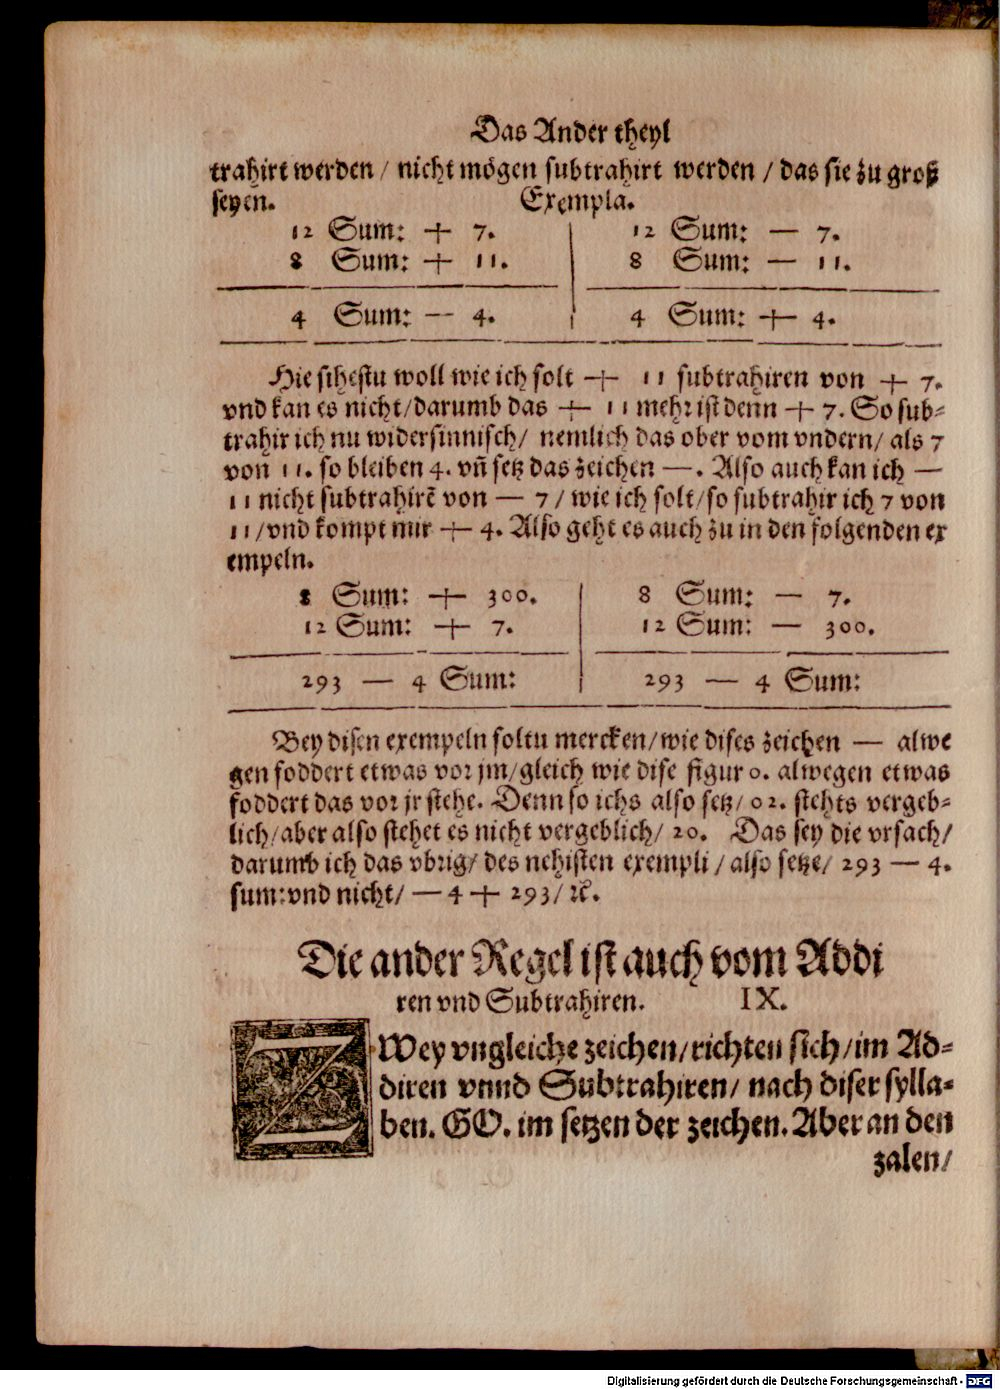 Das Ander theyl
trahirt werden / nicht mögen subtrahirt werden / das sie zu groß
seyen. Exempla.
12 Sum: + 7. 12 Sum: — 7.
8 Sum: + 11. 8 Sum: — 11.
4 Sum: — 4. 4 Sum: + 4.
Hie sihestu woll wie ich solt + 11 subtrahiren von + 7.
vnd kan es nicht/darumb das + 11 mehr ist denn + 7. So sub=
trahir ich nu widersinnisch/ nemlich das ober vom vndern/ als 7
von 11. so bleiben 4. vñ setz das zeichen —. Also auch kan ich —
11 nicht subtrahirẽ von — 7/ wie ich solt/so subtrahir ich 7 von
11/vnd kompt mir + 4. Also geht es auch zu in den folgenden ex
empeln.
8 Sum: + 300. 8 Sum: — 7.
12 Sum: + 7. 12 Sum: — 300.
293 — 4 Sum: 293 — 4 Sum:
Bey disen exempeln soltu mercken/wie dises zeichen — alwe
gen foddert etwas vor jm/gleich wie dise figur 0. alwegen etwas
foddert das vor jr stehe. Denn so ichs also setz/ 02. stehts vergeb=
lich/aber also stehet es nicht vergeblich/ 20. Das sey die vrsach/
darumb ich das vbrig/ des nehisten exempli / also setze/ 293 — 4.
sum:vnd nicht/ — 4 + 293/ ꝛc.
Die ander Regel ist auch vom Addi
ren vnd Subtrahiren. IX.
ZWey vngleiche zeichen/richten sich/im Ad=
diren vnnd Subtrahiren/ nach diser sylla=
ben. GO. im setzen der zeichen. Aber an den
zalen/
Digitalisierung gefördert durch die Deutsche Forschungsgemeinschaft - DFG